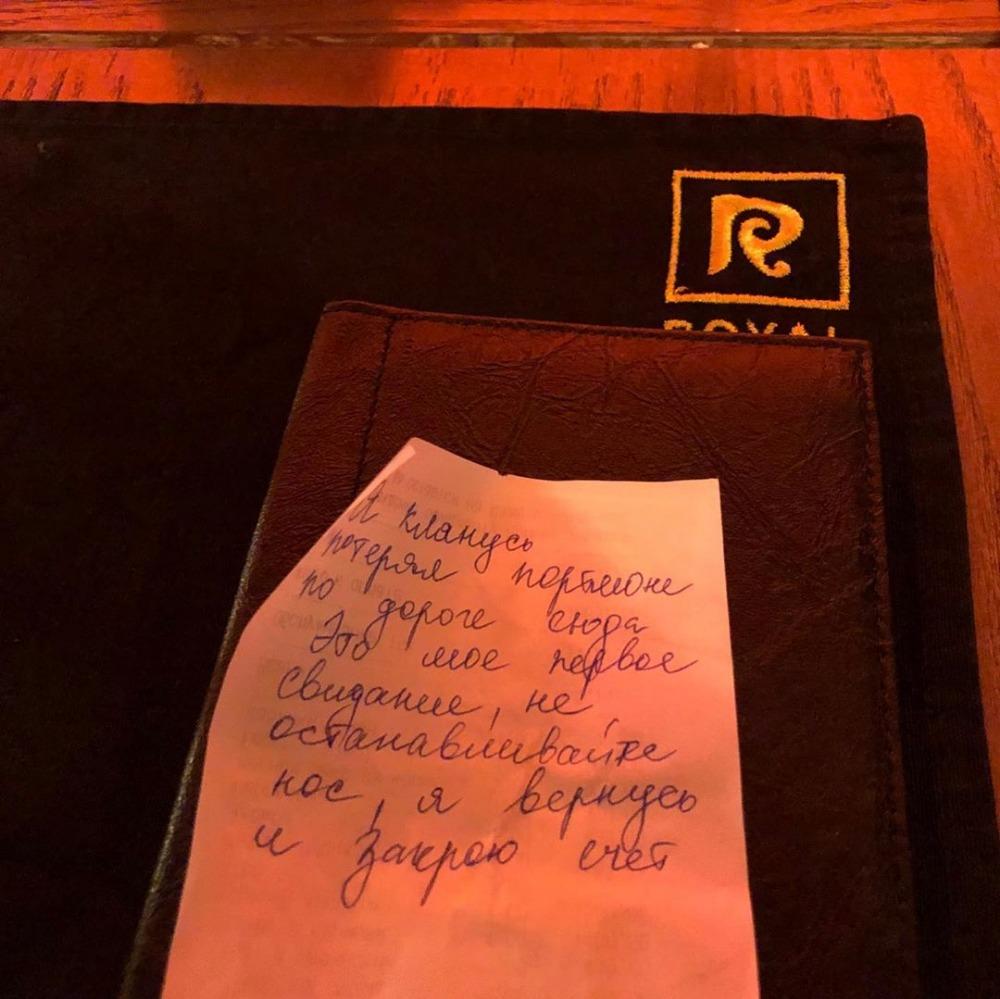 R
ROYAL
Я клянусь
потерял портмоне
по дороге сюда
Это мое первое
свидание, не
останавливайте
нос, я вернусь
и закрою счет